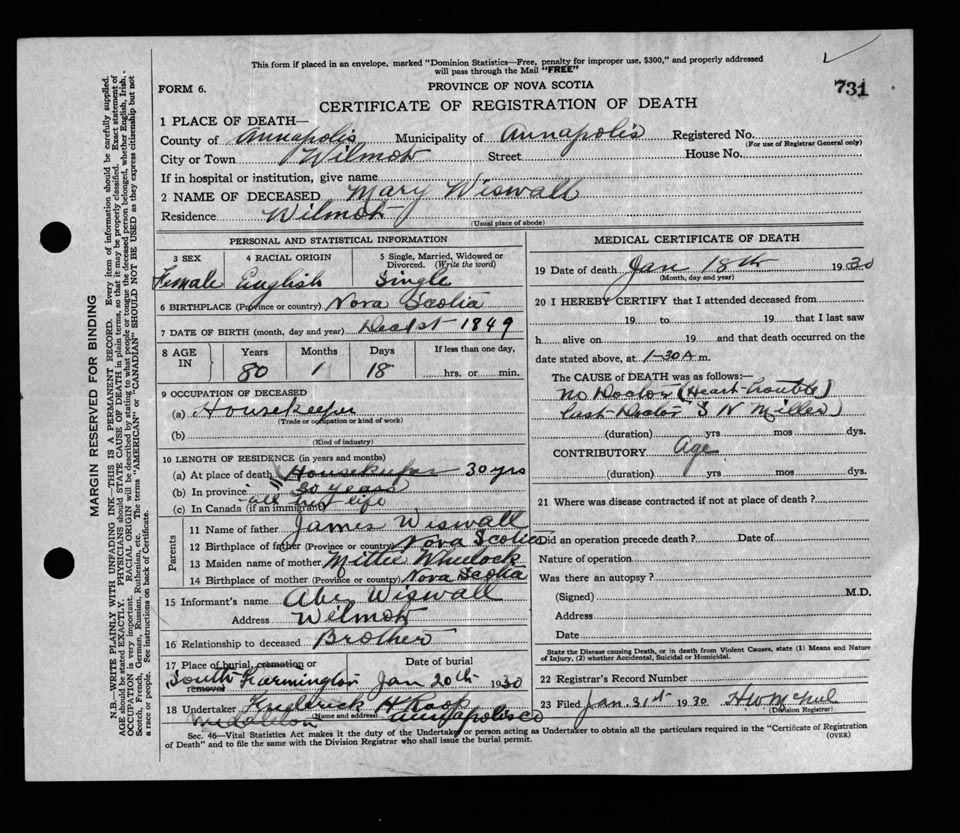 This form if placed in an envelope, marked "Dominion Statistics—Free, penalty for improper use, $300," and properly addressed
will pass through the Mail "FREE"
731
FORM 6.
PROVINCE OF NOVA SCOTIA
CERTIFICATE OF REGISTRATION OF DEATH
1 PLACE OF DEATH—
County of Annapolis Municipality of Annapolis Registered No.
(For use of Registrar General only)
City or Town Wilmot Street House No.
If in hospital or institution, give name
2 NAME OF DECEASED Mary Wiswall
Residence Wilmot
(Usual place of abode)
PERSONAL AND STATISTICAL INFORMATION
3 SEX 4 RACIAL ORIGIN 5 Single, Married, Widowed or Divorced. (Write the word)
Female English Single
6 BIRTHPLACE (Province or country) Nova Scotia
7 DATE OF BIRTH (month, day and year) Dec 1st 1849
8 AGE IN Years Months Days If less than one day,
80 1 18 hrs. or min.
9 OCCUPATION OF DECEASED
(a) Housekeeper
(Trade or occupation or kind of work)
(b)
(Kind of industry)
10 LENGTH OF RESIDENCE (in years and months)
(a) At place of death Housekeeper 30 yrs
(b) In province 30 years
all her life
(c) In Canada (if an immigrant)
Parents
11 Name of father James Wiswall
12 Birthplace of father (Province or country) Nova Scotia
13 Maiden name of mother Mittie Wheelock
14 Birthplace of mother (Province or country) Nova Scotia
15 Informant's name Aber Wiswall
Address Wilmot
16 Relationship to deceased Brother
17 Place of burial, cremation or removal Date of burial
South Farmington Jan 20th 1930
18 Undertaker Fredrick H Roop
(Name and address)
Middleton Annapolis Co
MEDICAL CERTIFICATE OF DEATH
19 Date of death Jan 18th 1930
(Month, day and year)
20 I HEREBY CERTIFY that I attended deceased from
19 to 19 that I last saw
h alive on 19 and that death occurred on the
date stated above, at 1-30 A m.
The CAUSE of DEATH was as follows:—
No Doctor (Heart trouble)
Last Doctor S N Miller)
(duration) yrs mos dys.
CONTRIBUTORY Age
(duration) yrs mos dys.
21 Where was disease contracted if not at place of death?
Did an operation precede death? Date of
Nature of operation
Was there an autopsy?
(Signed) M.D.
Address
Date
State the Disease causing Death, or in death from Violent Causes, state (1) Means and Nature
of Injury, (2) whether Accidental, Suicidal or Homicidal.
22 Registrar's Record Number
23 Filed Jan. 31st 1930
(Division Registrar)
Sec. 46—Vital Statistics Act makes it the duty of the Undertaker or person acting as Undertaker to obtain all the particulars required in the "Certificate of Registration
of Death" and to file the same with the Division Registrar who shall issue the burial permit.
(OVER)
MARGIN RESERVED FOR BINDING
N.B.—WRITE PLAINLY WITH UNFADING INK—THIS IS A PERMANENT RECORD. Every item of information should be carefully supplied.
AGE should be stated EXACTLY. PHYSICIANS should STATE CAUSE OF DEATH in plain terms, so that it may be properly classified. Exact statement of
OCCUPATION is very important. RACIAL ORIGIN will be described by stating to what people or tongue the deceased person belonged, whether English, Irish,
Scotch, French, German, Russian, Ruthenian, etc. The terms "AMERICAN" or "CANADIAN" SHOULD NOT BE USED as they express citizenship but not
a race or people. See instructions on back of Certificate.